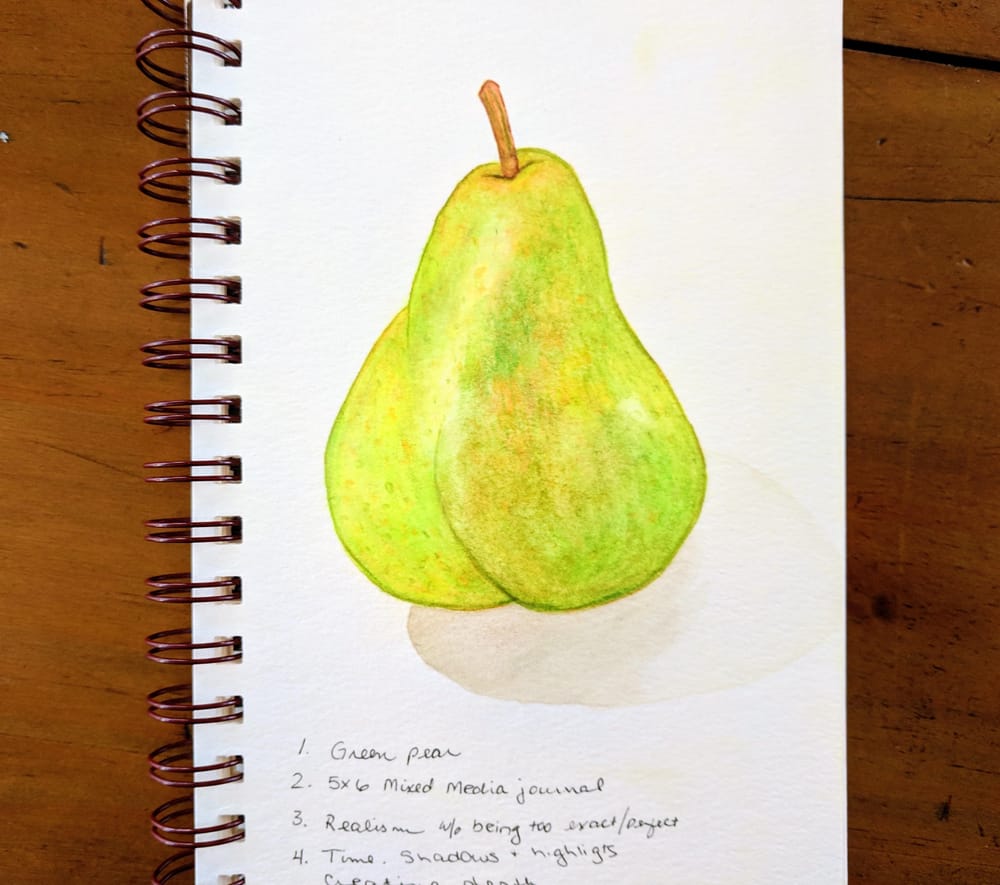 1. Green pear
2. 5x6 Mixed Media journal
3. Realism w/o being too exact/perfect
4. Time. Shadows + highligts
Creating depth